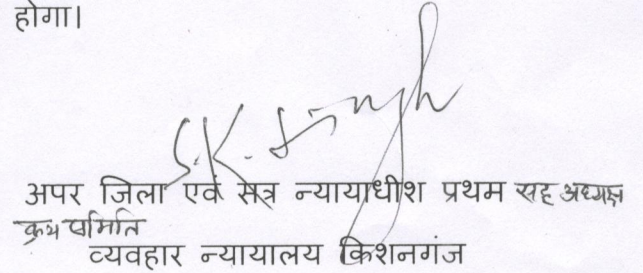 होगा।
S.K. Singh
अपर जिला एवं सत्र न्यायाधीश प्रथम सह अध्यक्ष
क्रय समिति
व्यवहार न्यायालय किशनगंज